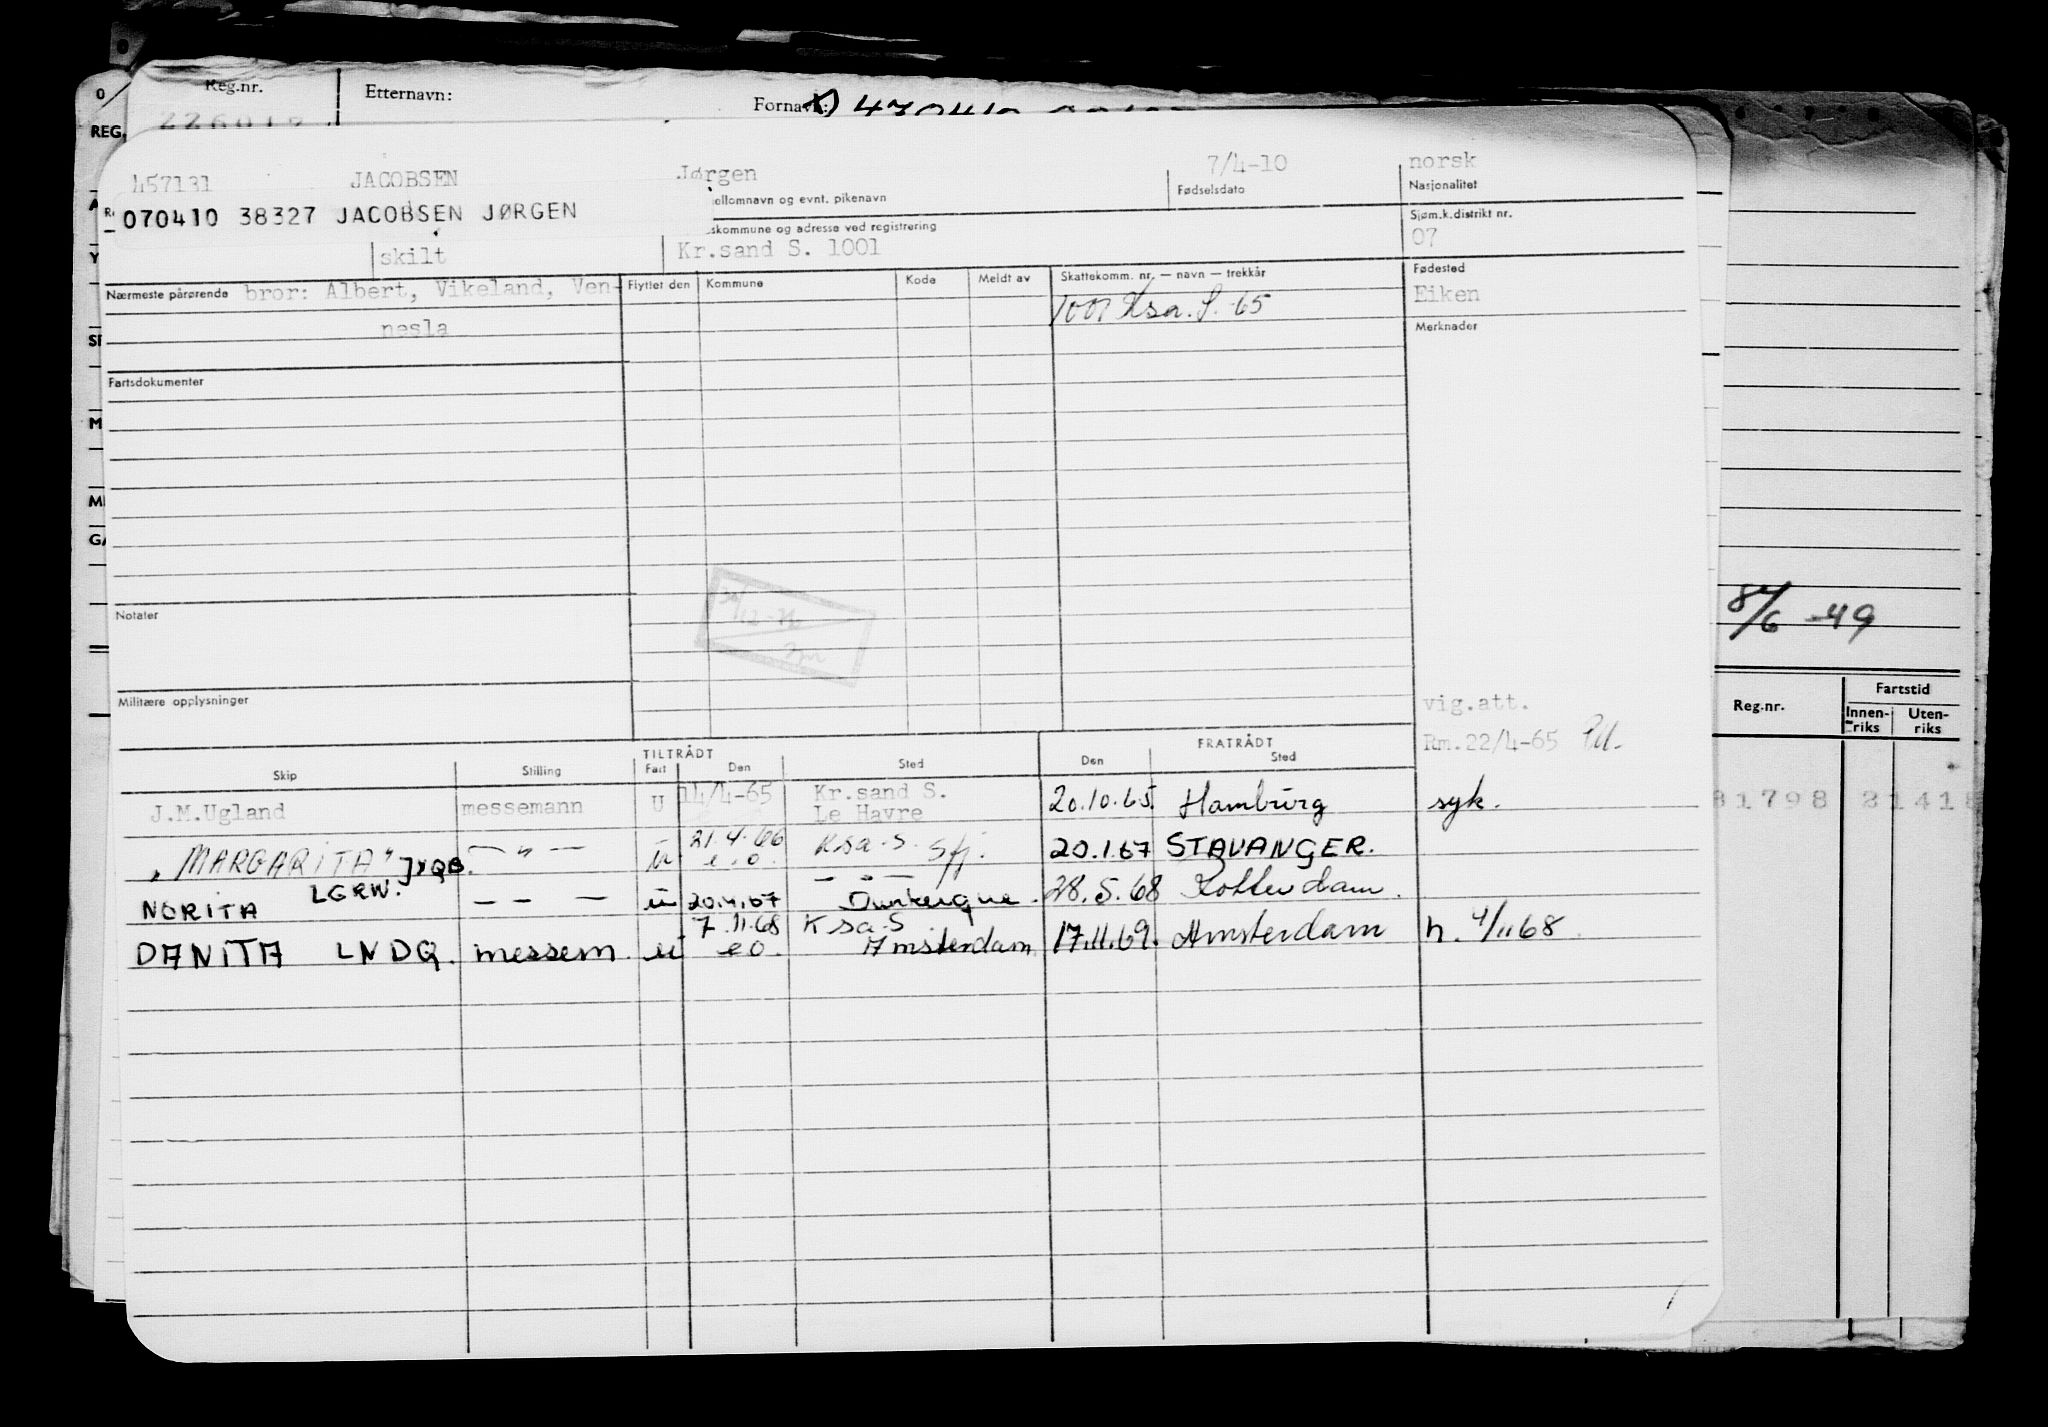 Reg.nr. Etternavn: Fornavn:
REG.
457131 JACOBSEN Jørgen 7/4-10 norsk
ellomnavn og evnt. pikenavn Fødselsdato Nasjonalitet
070410 38327 JACOBSEN JØRGEN
skommune og adresse ved registrering Sjøm.k.distrikt nr.
skilt Kr.sand S. 1001 07
Nærmeste pårørende bror: Albert, Vikeland, Ven- Flyttet den Kommune Kode Meldt av Skattekomm. nr. — navn — trekkår Fødested
nesla 1001 Ksa. S. 65 Eiken
Merknader
Fartsdokumenter
Notater
8/6 -49
Militære opplysninger vig.att.
Rm.22/4-65
Reg.nr. Fartstid
Innen-riks Uten-riks
TILTRÅDT FRATRÅDT
Skip Stilling Fart Den Sted Den Sted
J.M.Ugland messemann U 14/4-65 Kr.sand S. Le Havre 20.10.65 Hamburg syk.
"MARGARITA" JXQB. — " — u 21.4.66 e.o. Ksa. S. Sfj. 20.1.67 STAVANGER.
NORITA LGRW. — — — u 20.4.67 — " — Dunkerque. 28.5.68 Rotterdam.
DANITA LNDQ. messem. u 7.11.68 eo. Ksa. S Amsterdam 17.11.69. Amsterdam h. 4/11 68.
81798